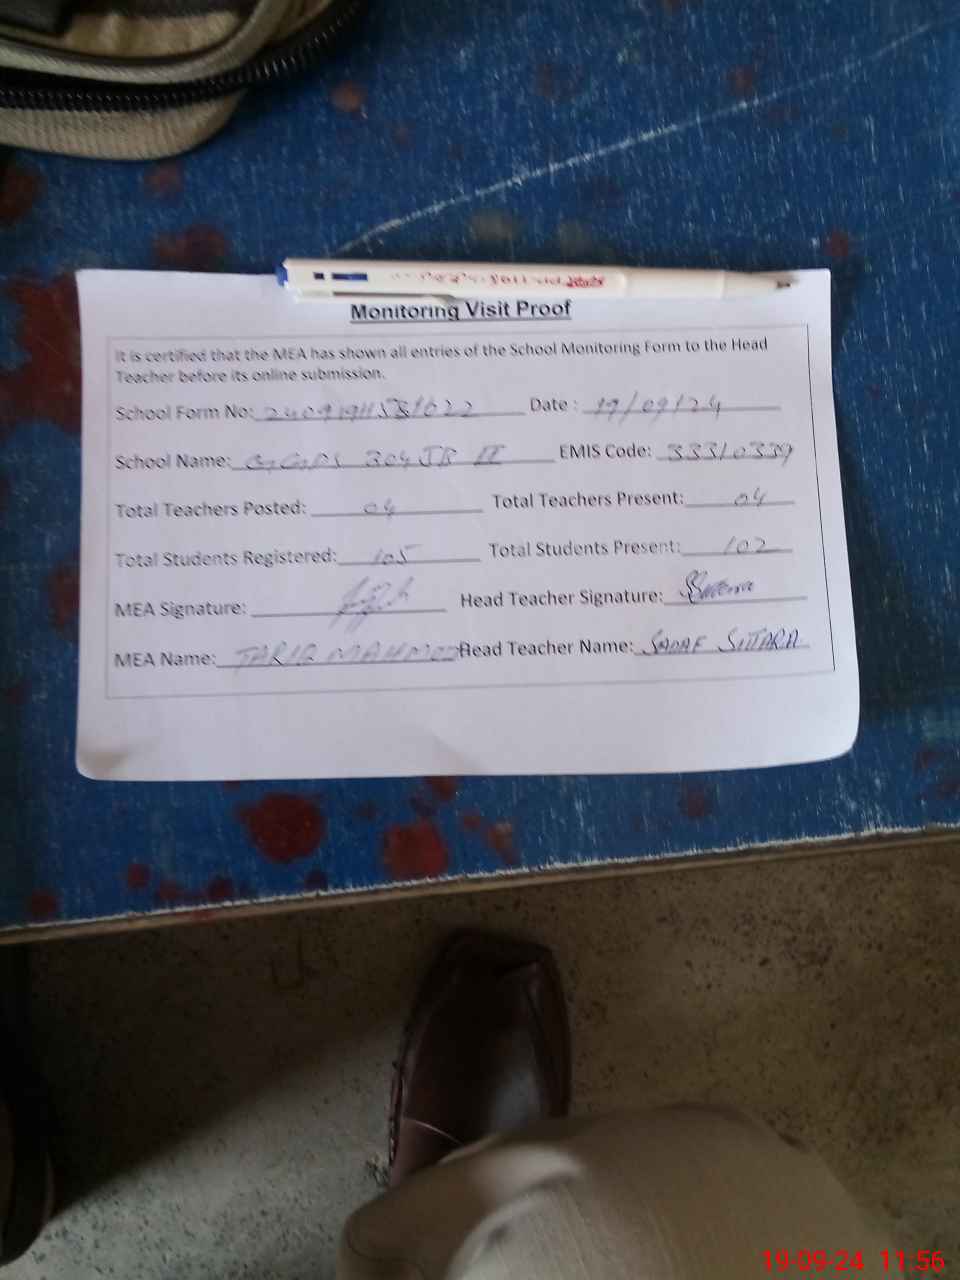 Monitoring Visit Proof
It is certified that the MEA has shown all entries of the School Monitoring Form to the Head
Teacher before its online submission.
School Form No: Date: 19/09/24
School Name: GGPS 304 JB II EMIS Code: 33310339
Total Teachers Posted: 04 Total Teachers Present: 04
Total Students Registered: 105 Total Students Present: 102
MEA Signature: Head Teacher Signature:
MEA Name: TARIQ MAHMOOD Head Teacher Name: SADAF SITARA
19-09-24 11:56